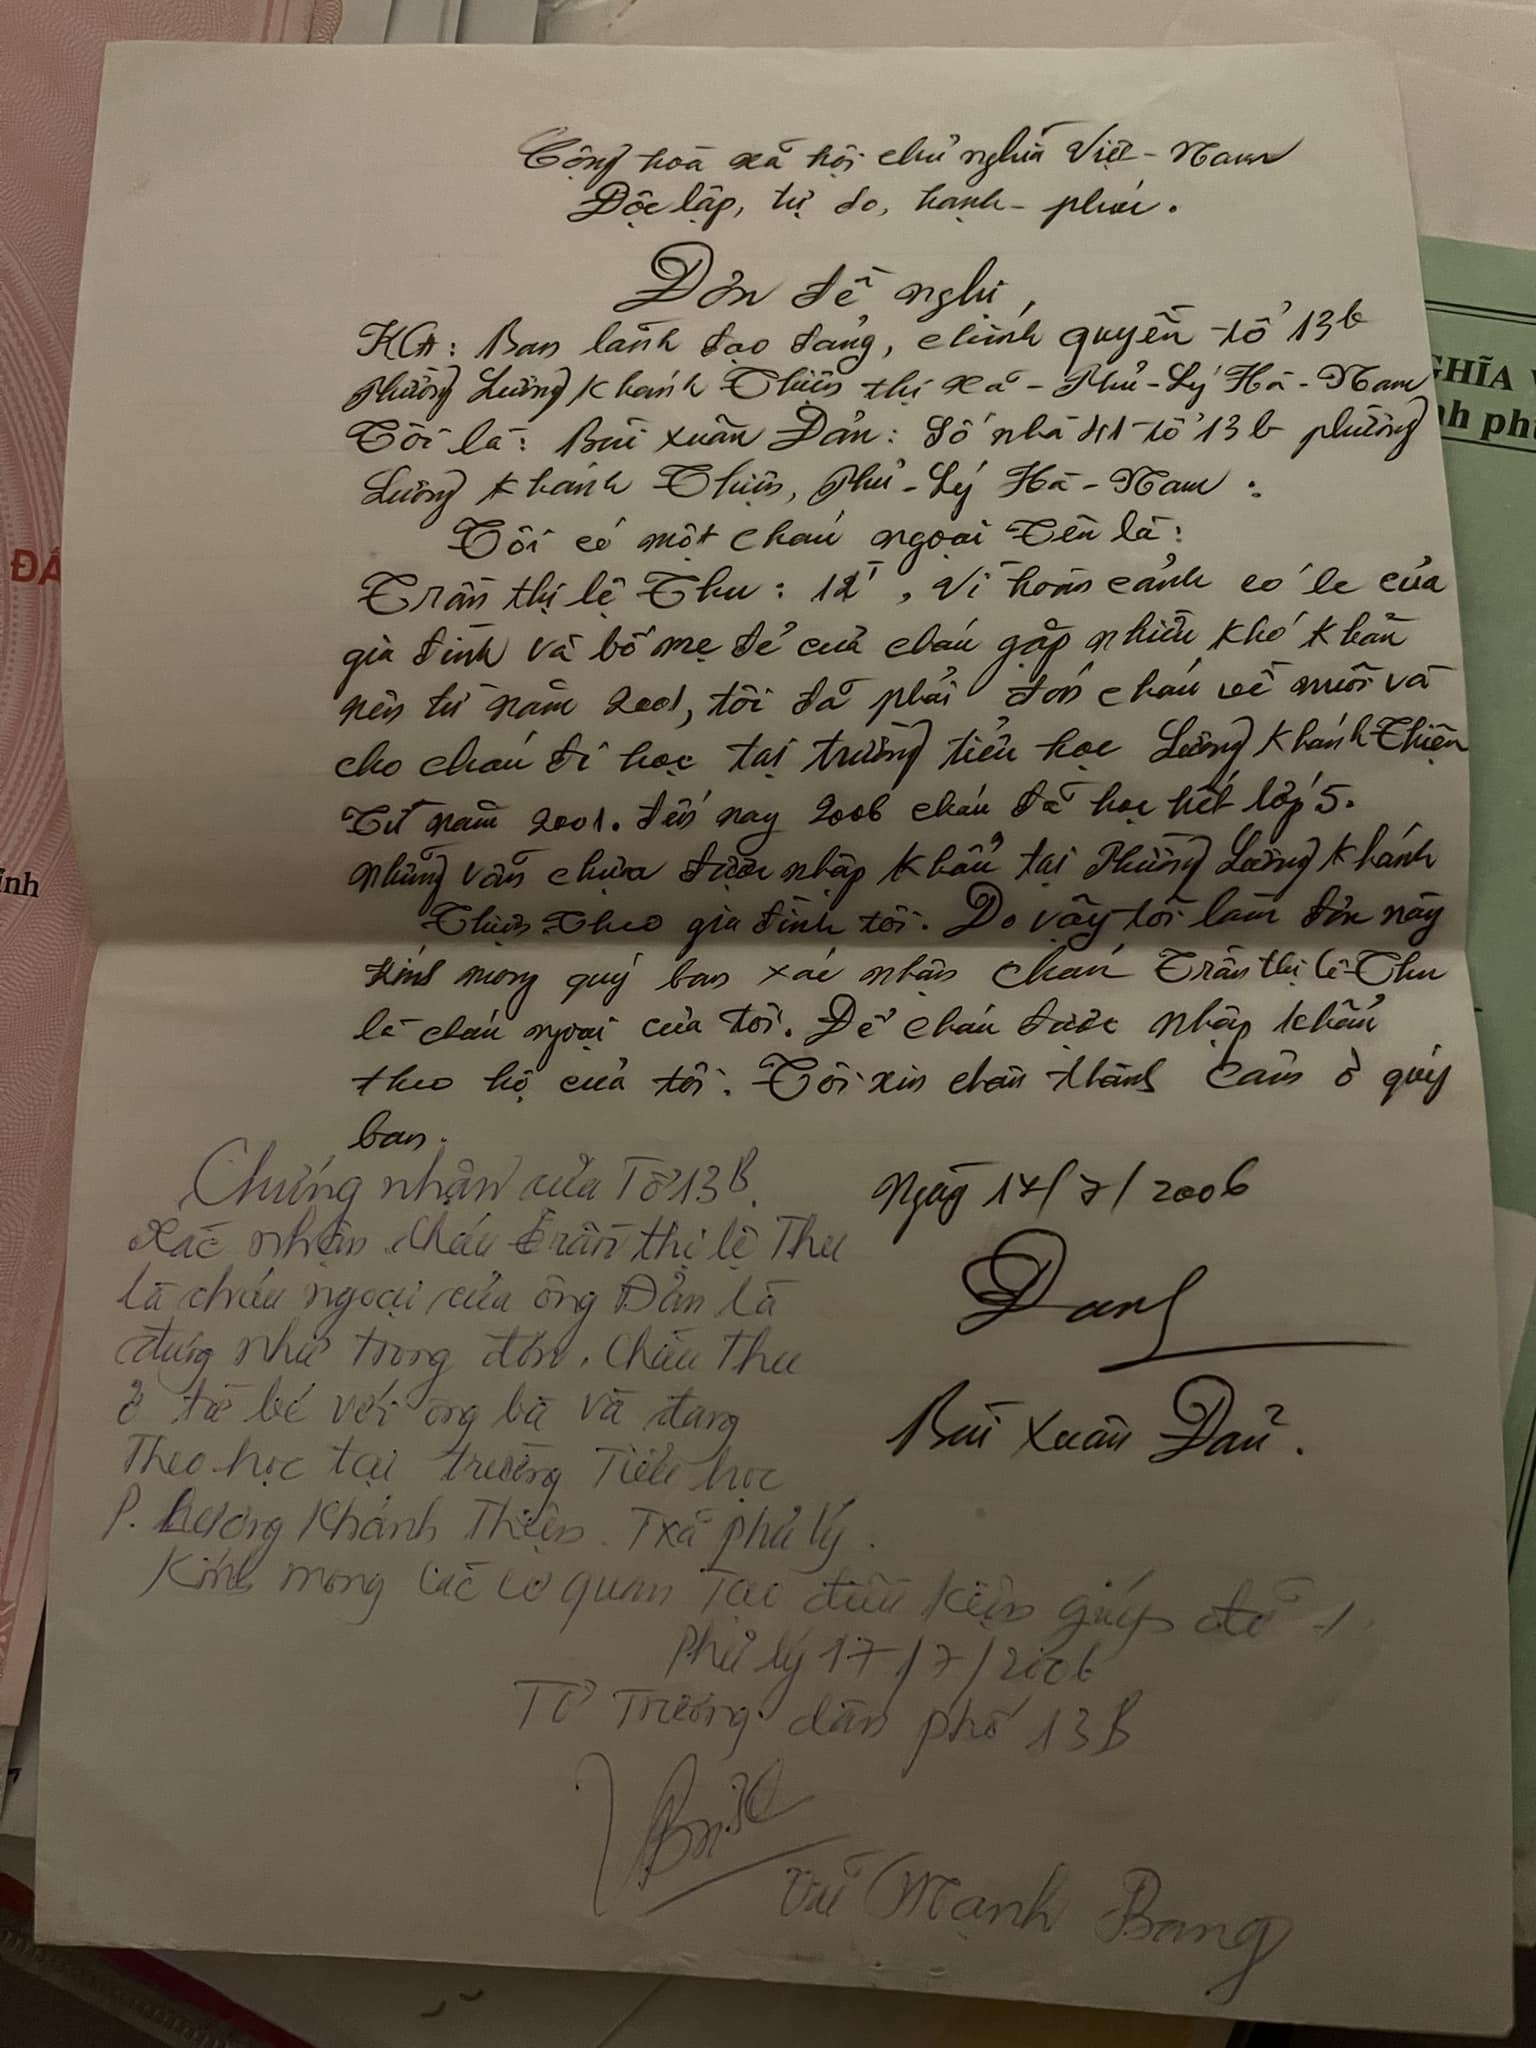 Cộng hoà xã hội chủ nghĩa Việt-Nam
Độc lập, tự do, hạnh-phúc.
Đơn đề nghị,
KG: Ban lãnh đạo đảng, chính quyền tổ 13b
Phường Lương Khánh Thiện thị xã-Phủ-Lý Hà-Nam
Tôi là: Bùi Xuân Đản: Số nhà tổ 13b phường
Lương Khánh Thiện, Phủ-Lý Hà-Nam:
Tôi có một cháu ngoại tên là:
Trần thị lệ Thu: 12, Vì hoàn cảnh éo le của
gia đình và bố mẹ đẻ của cháu gặp nhiều khó khăn
nên từ năm 2001, tôi đã phải đón cháu về nuôi và
cho cháu đi học tại trường tiểu học Lương Khánh Thiện
Từ năm 2001. đến nay 2006 cháu đã học hết lớp 5.
nhưng vẫn chưa được nhập khẩu tại Phường Lương Khánh
Thiện theo gia đình tôi. Do vậy tôi làm đơn này
kính mong quý ban xác nhận cháu Trần thị lệ Thu
là cháu ngoại của tôi. Để cháu được nhập khẩu
theo hộ của tôi. Tôi xin chân thành cảm ơ quý
ban.
Ngày 14/7/2006
Bùi Xuân Đản.
Chứng nhận của Tổ 13B.
Xác nhận cháu Trần thị lệ Thu
là cháu ngoại của ông Đản là
đúng như trong đơn. Cháu Thu
ở từ bé với ông bà và đang
Theo học tại trường Tiểu học
P. Lương Khánh Thiện. Txã phủ lý.
Kính mong các cơ quan Tạo điều kiện giúp đỡ
Phủ lý 17/7/2006
Tổ Trưởng dân phố 13B
Vũ Mạnh Bang
GHĨA V
nh phú
ĐẤ
inh